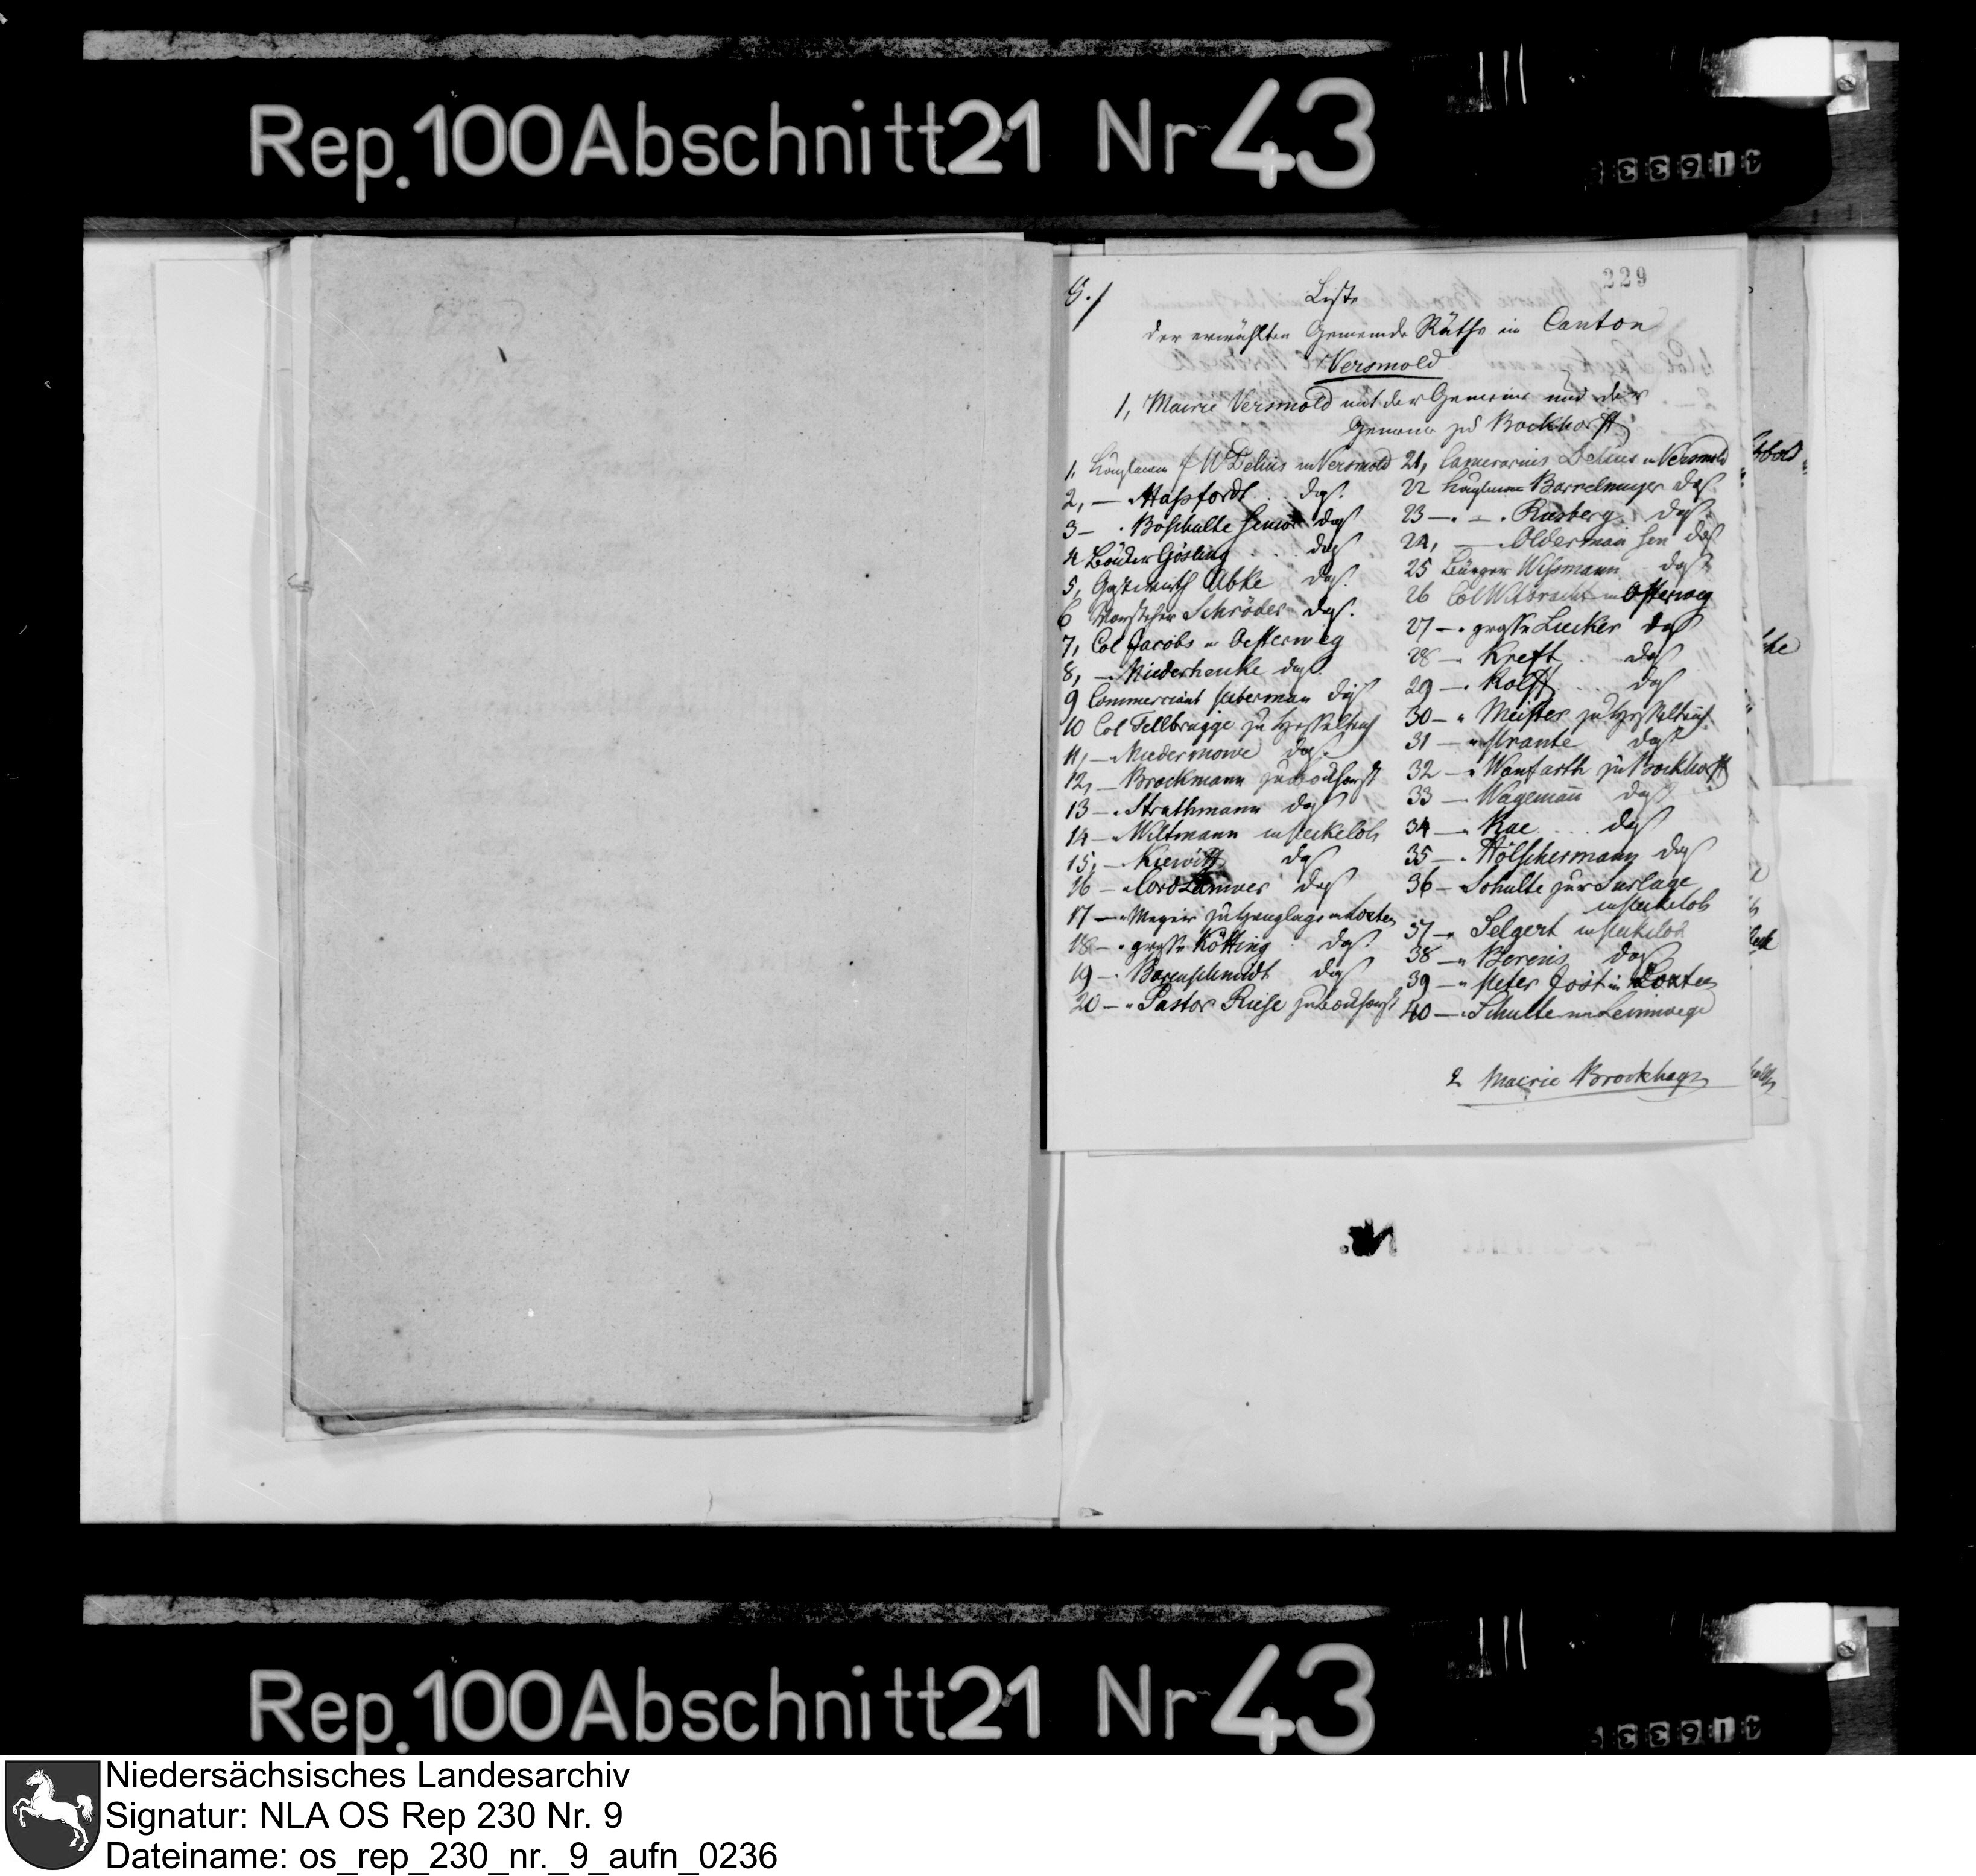 Rep. 100 Abschnitt 21 Nr 43
41633
229
Liste
der erwählten Gemeinde Räthe in Canton
Versmold
1, Mairie Versmold mit der Gemeine und der
Gemeine zu Bockhorst
1, Kaufmann F W Delius in Versmold
2, — Haßfordt das.
3 — Boschulte Senior das
4 Gösling das
5, Gastwirth Abke das.
6 Vorsteher Schröder das.
7, Col Jacobs in Oesterweg
8, — Niederhenke das.
9 Commerciant das
10 Col Fellbrügge zu Hesselteich
11, — Niedermowe das.
12, — Brockmann zu Bockhorst
13 — Strathmann das
14 — Wiltmann in Peckeloh
15, — Kiewitt das
16 — das
17 — Meyer in Loxten
18 — grosse Kötting das.
19 — Barenschmidt das
20 — Pastor Riese zu Bockhorst
21, Camerarius Delius in Versmold
22 Kaufmann Barrelmeyer das.
23 — Rusberg das
24, — Olderman sen das
25 Bürger Wißmann das
26 Col in Osterweg
27 — grosse Luecker das
28 — Kreft das
29 — Rolff das
30 — Meister zu Hesselteich
31 — das
32 — Wanfarth zu Bockhorst
33 — Wagemann das
34 — Rae das
35 — Hölschermann das
36 — Schulte zur Surlage
in Peckeloh
37 — Selgert in Peckeloh
38 — Berens das
39 — Peter Jost in Loxten
40 — Schulte im Leimwege
2 Mairie Brockhagen
Rep. 100 Abschnitt 21 Nr 43
41633
Niedersächsisches Landesarchiv
Signatur: NLA OS Rep 230 Nr. 9
Dateiname: os_rep_230_nr._9_aufn_0236